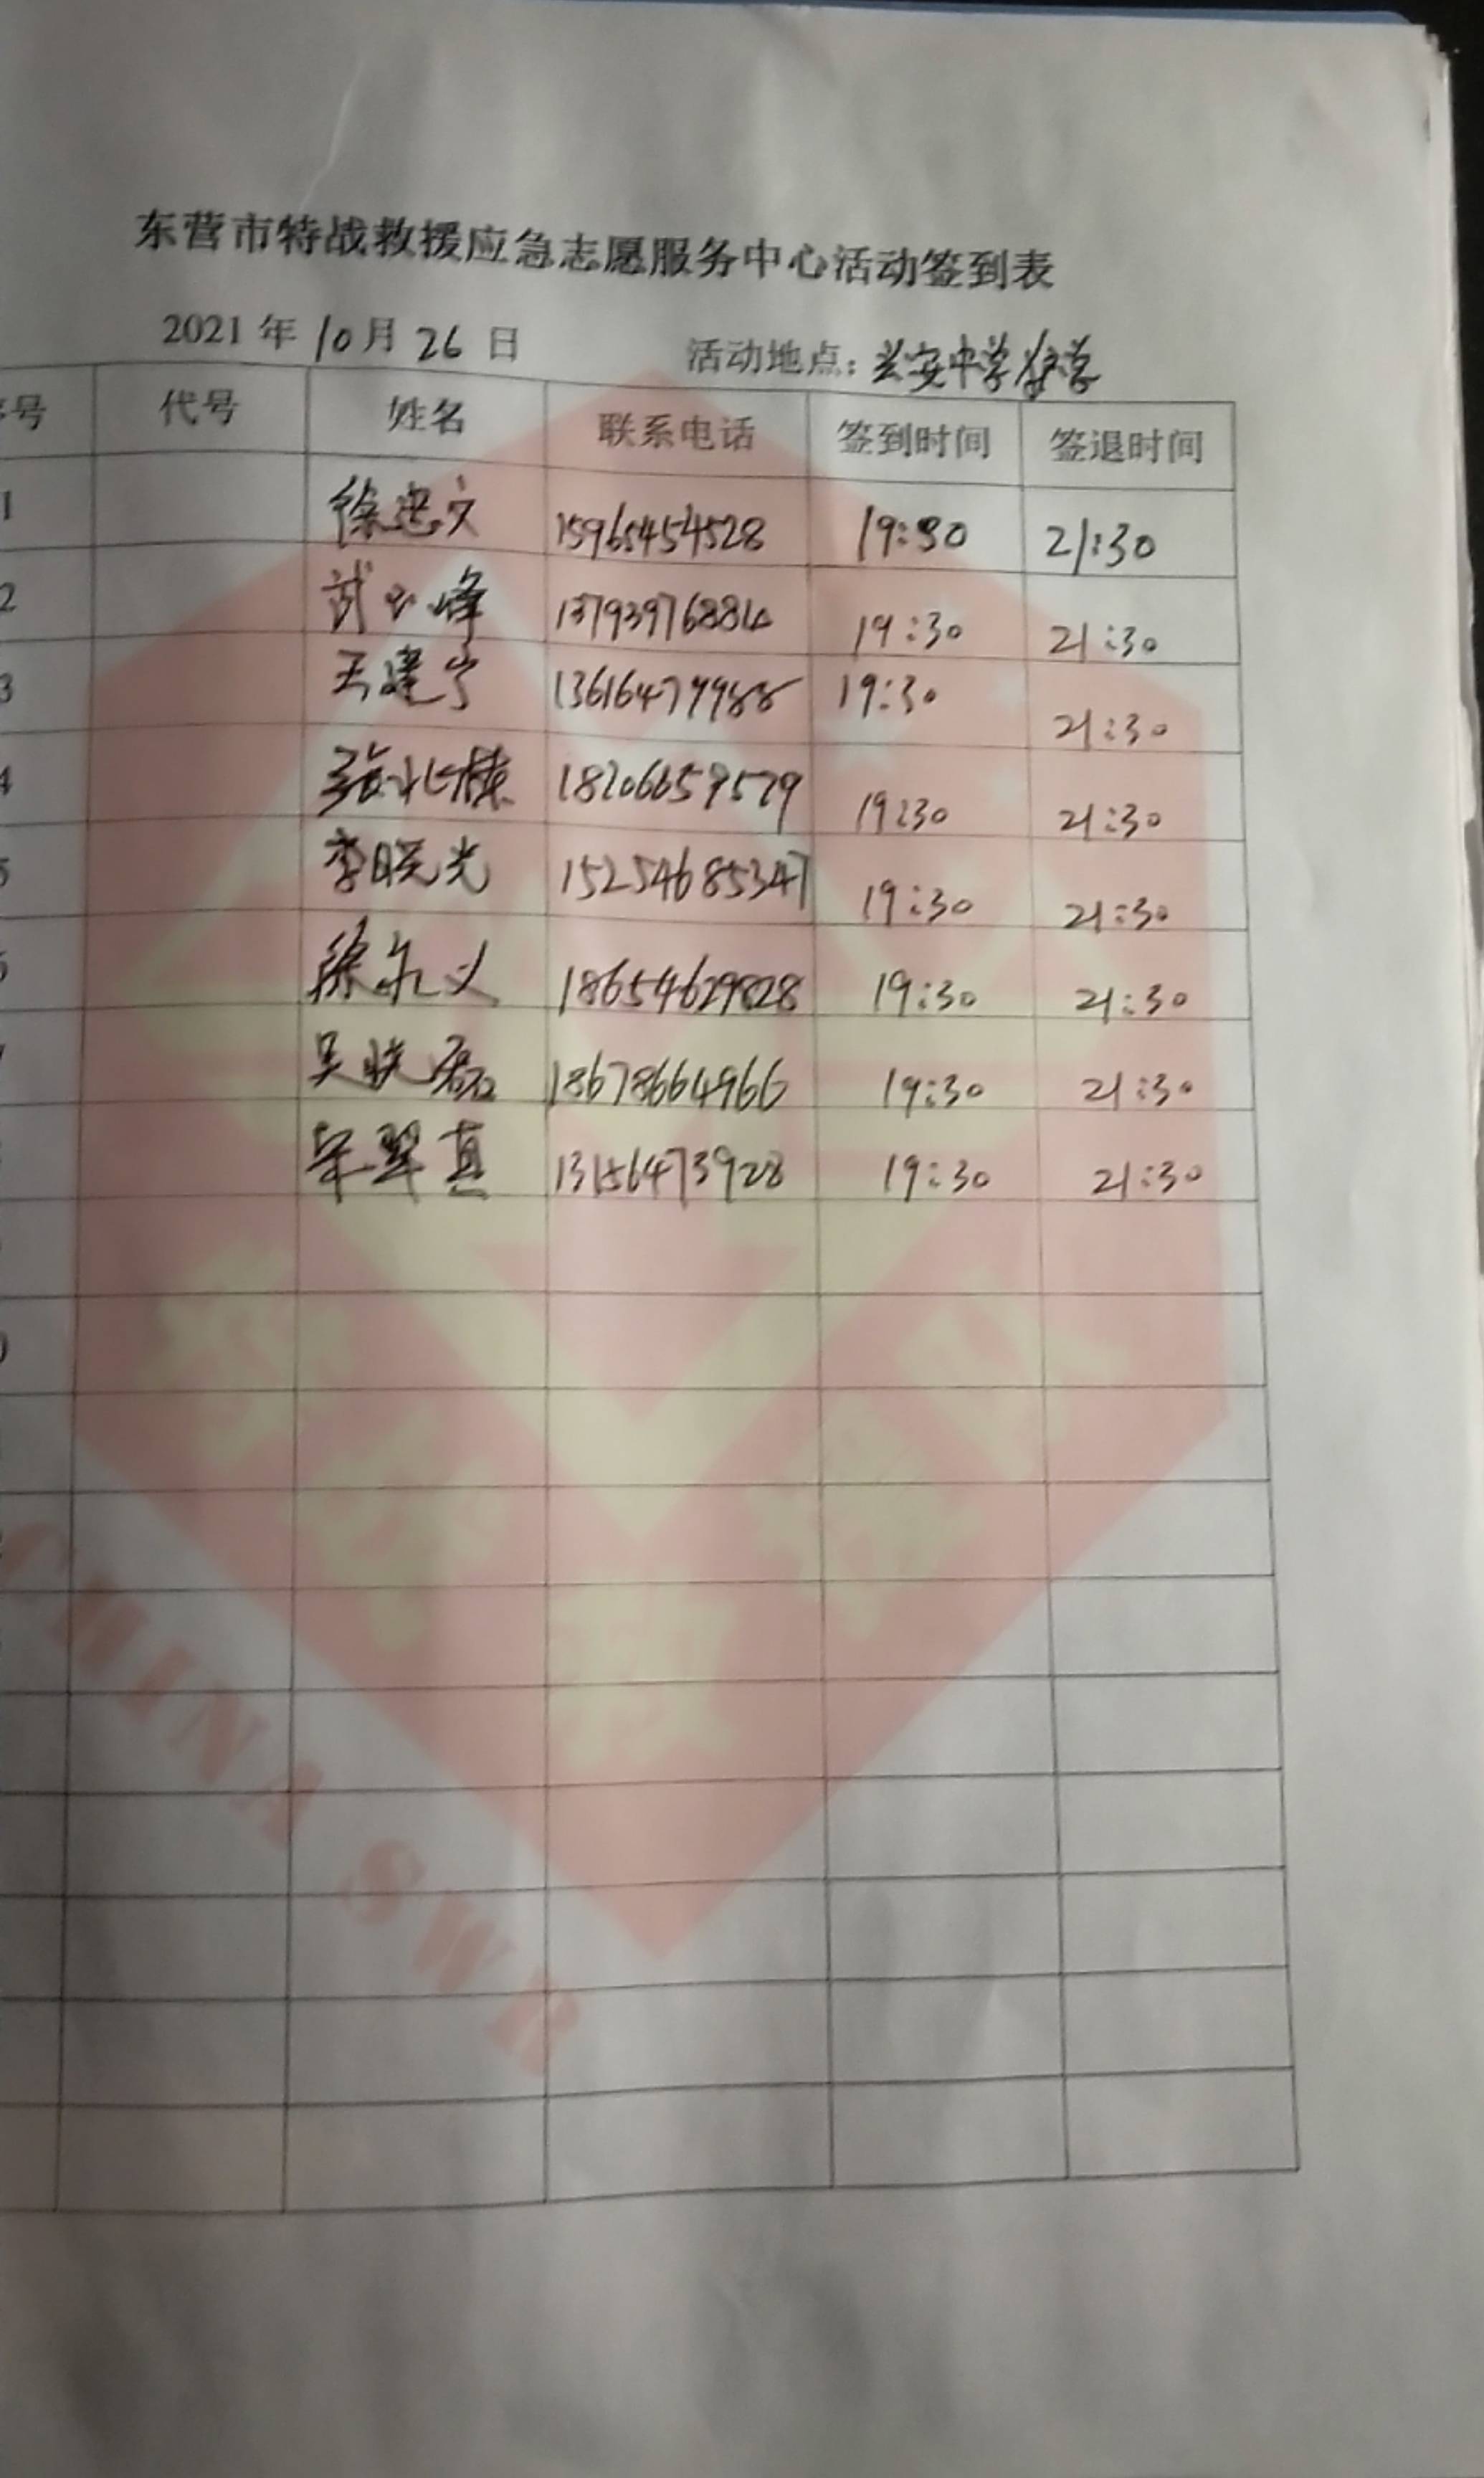 东营市特战救援应急志愿服务中心活动签到表
2021年10月26日 活动地点：兴安中学护学
序号 代号 姓名 联系电话 签到时间 签退时间
1 徐忠文 15965454528 19:30 21:30
2 武 峰 19:30 21:30
3 王建宁 19:30 21:30
4 张兆栋 18206659579 19:30 21:30
5 李晓光 15254685347 19:30 21:30
徐永义 18654629828 19:30 21:30
吴晓磊 18678664966 19:30 21:30
翠真 13156473928 19:30 21:30
CHINA SWR